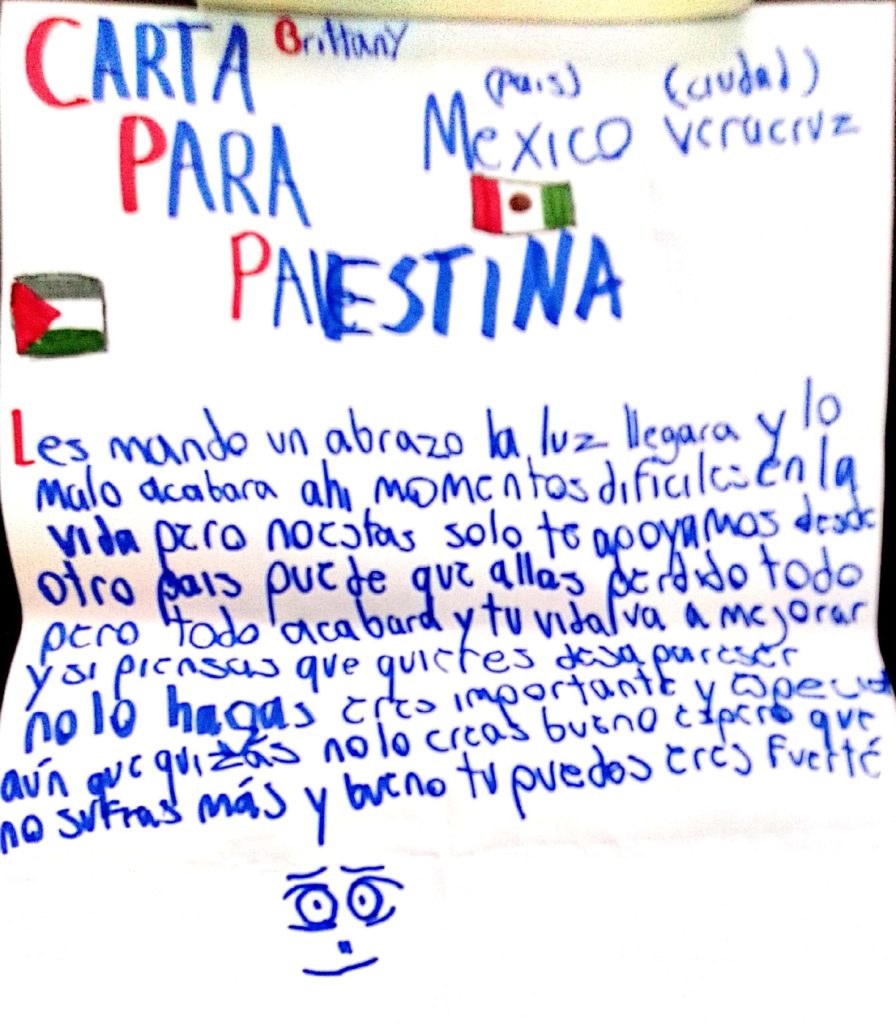 CARTA Brittany
(pais) (ciudad)
Mexico veracruz
PARA
PALESTINA
Les mando un abrazo la luz llegara y lo
malo acabara ahi momentos dificiles en la
vida pero no estas solo te apoyamos desde
otro pais puede que allas perdido todo
pero todo acabara y tu vida va a mejorar
y si piensas que quieres desapareser
no lo hagas eres importante y especial
aún que quizás no lo creas bueno espero que
no sufras más y bueno tu puedes eres fuerté